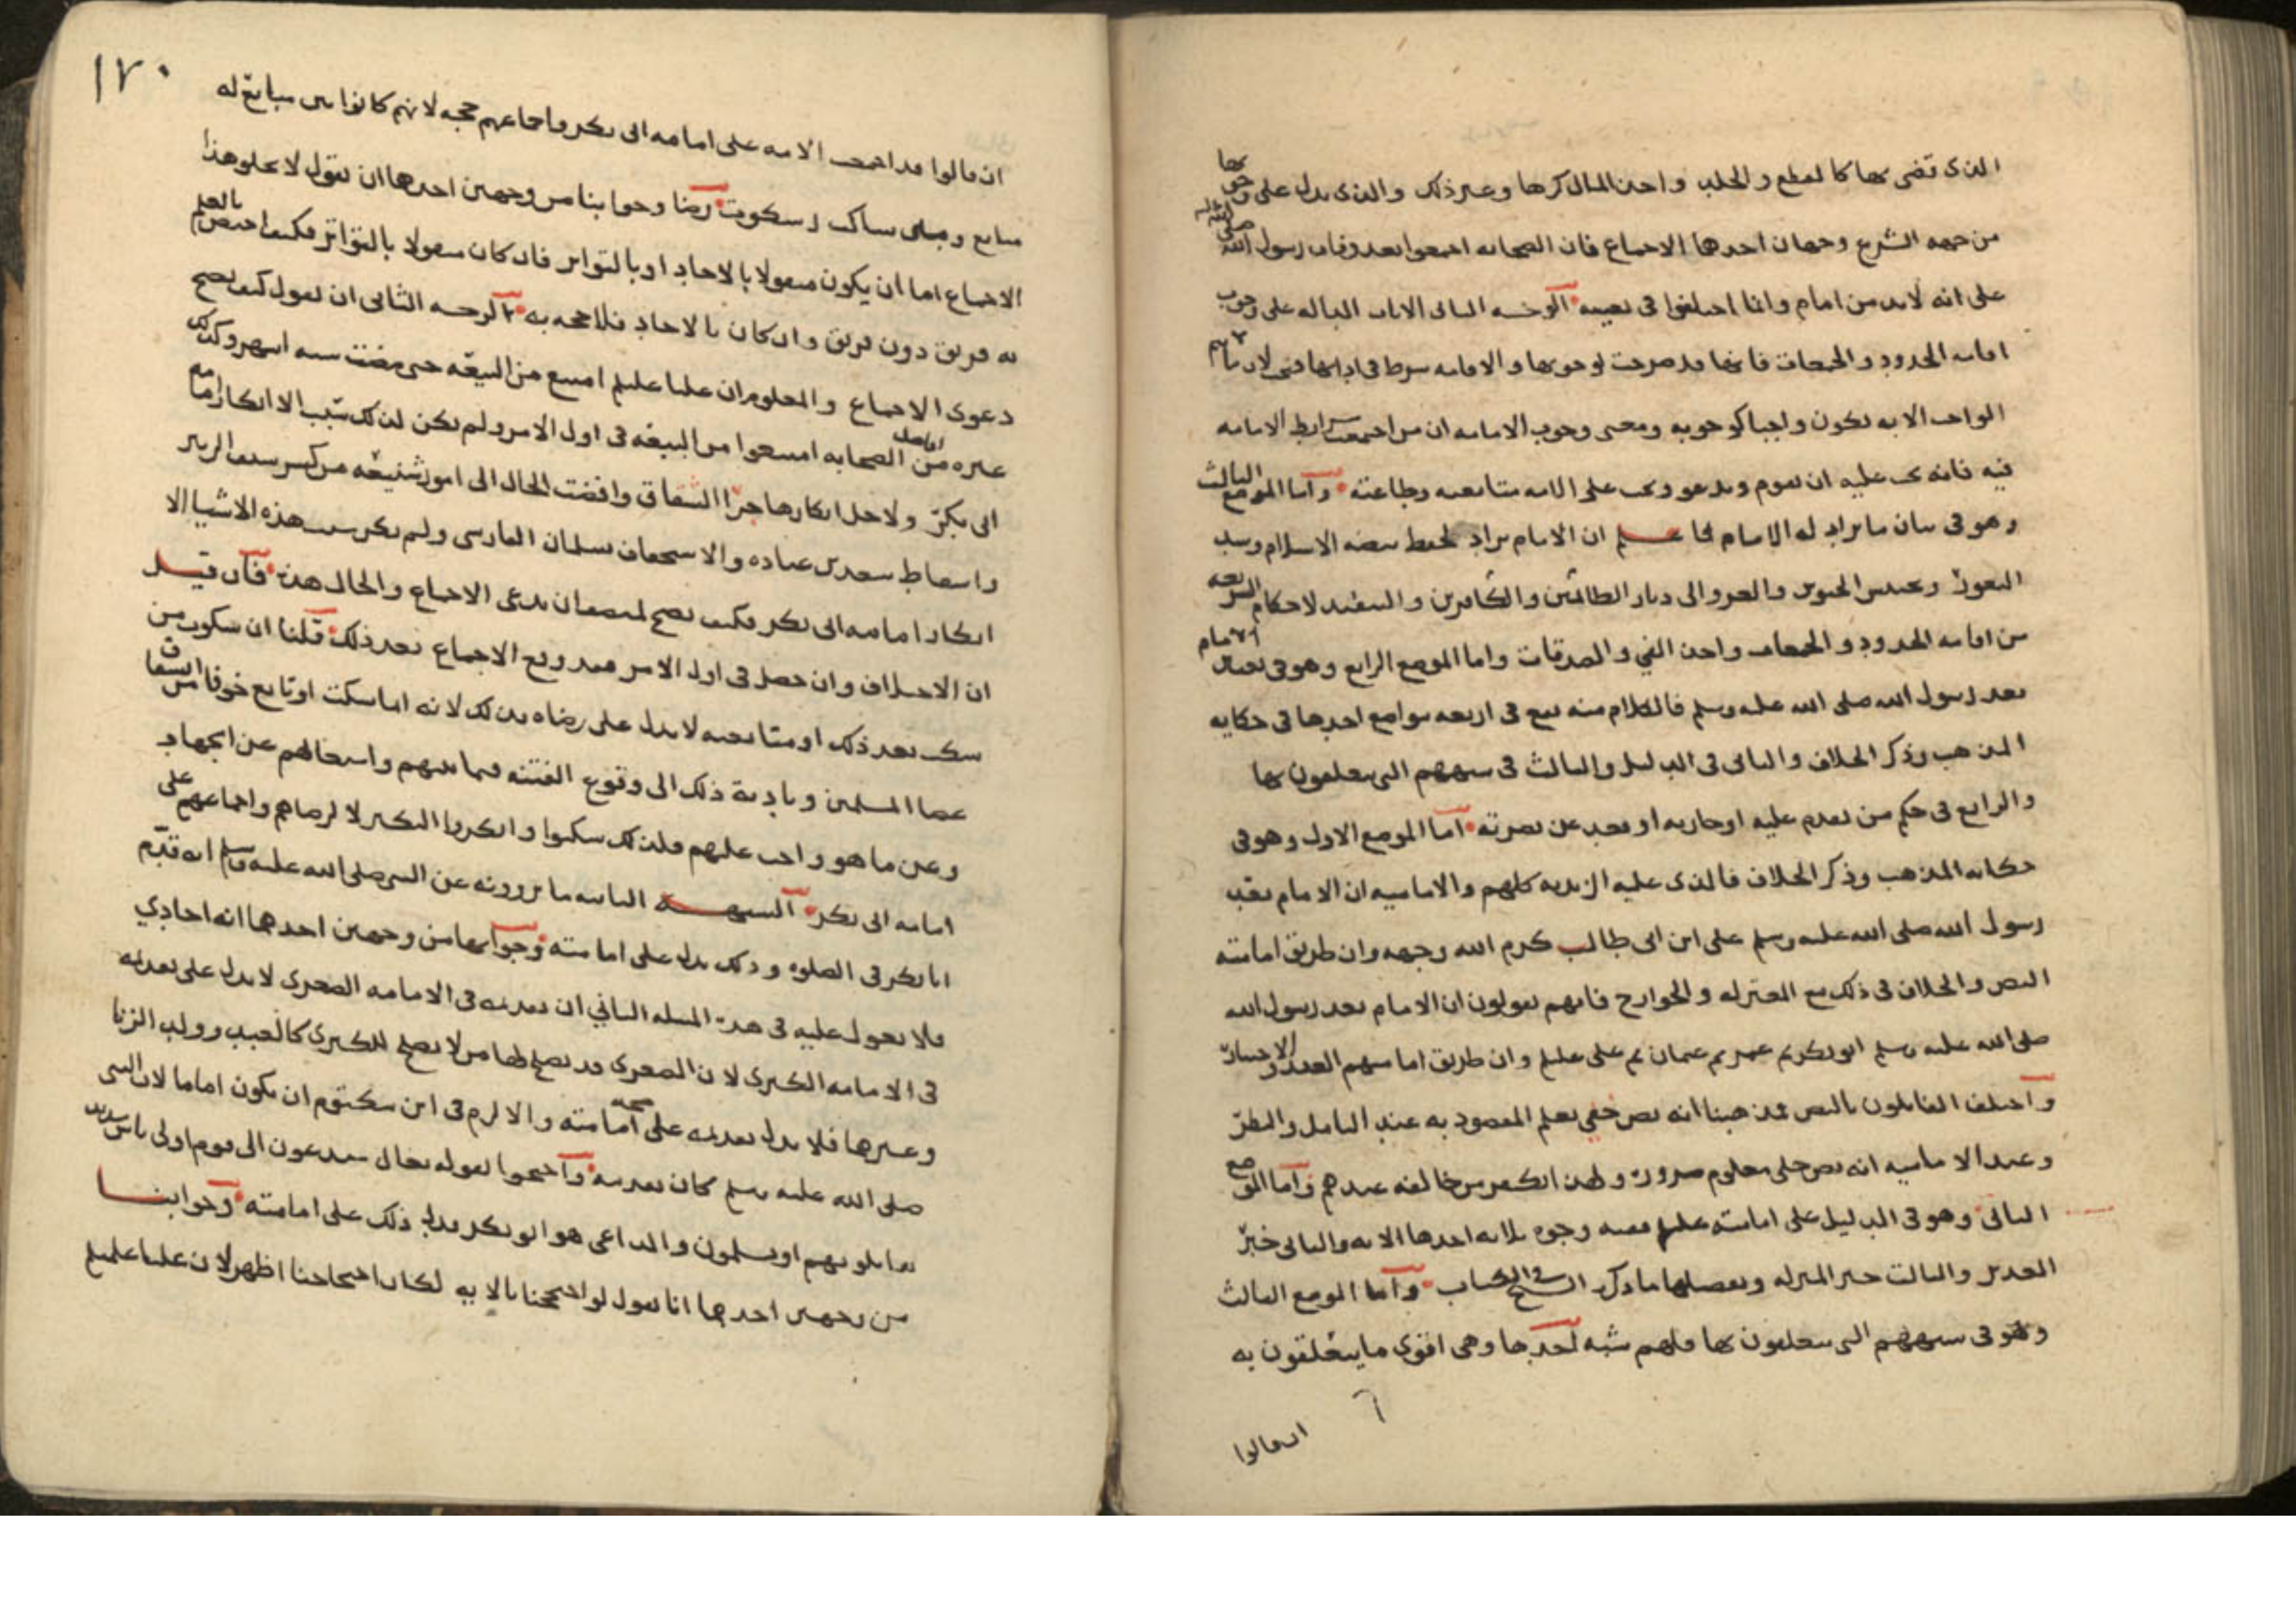 الذي تقضى بها كالقطع والجلد واخذ المال كرها وغير ذلك والذي يدل على وجوبها
من جهه الشرع وجهان احدهما الاجماع فان الصحابه اجمعوا بعد وفاه رسول الله صلى الله عليه
على انه لابد من امام وانما اختلفوا في تعيينه الوجـه الثاني الايات الداله على وجوب
اقامه الحدود والجمعات فانها قد صرحت بوجوبها والامامه شرط في ادائها فمتى لا يتم
الواجب الا به يكون واجبا كوجوبه ومعنى وجوب الامامه ان من اجتمعت شرايط الامامه
فيه فانه يجب عليه ان يقوم ويدعو ويجب على الامه متابعته وطاعته واما الموضع الثالث
وهو في بيان ما يراد له الامام فاعلم ان الامام يراد لحفظ بيضه الاسلام وسد
الثغور وتجنيد الجنود والغزو الى ديار الظالمين والكافرين والتنفيذ لاحكام الشريعه
من اقامه الحدود والجمعات واخذ الفي والصدقات واما الموضع الرابع وهو في تعيين الامام
بعد رسول الله صلى الله عليه وسلم فالكلام منه يقع في اربعه مواضع احدها في حكايه
المذهب وذكر الخلاف والثاني في الدليل والثالث في شبههم التي يتعلقون بها
والرابع في حكم من تقدم عليه او حاربه او قعد عن نصرته اما الموضع الاول وهو في
حكايه المذهب وذكر الخلاف فالذي عليه الزيديه كلهم والاماميه ان الامام بعد
رسول الله صلى الله عليه وسلم على ابن ابي طالب كرم الله وجهه وان طريق امامته
النص والخلاف في ذلك مع المعتزله والخوارج فانهم يقولون ان الامام بعد رسول الله
صلى الله عليه وسلم ابو بكر ثم عمر ثم عثمان ثم على عليلم وان طريق امامتهم العقد والاختيار
واختلف القايلون بالنص فمذهبنا انه نص خفي يعلم المقصود به عند التامل والنظر
وعند الاماميه انه نص جلي معلوم ضرورة ولهذا تكفير من خالفه عندهم واما الموضع
الثاني وهو في الدليل على امامته عليلم ففيه وجوه ثلاثه احدها الايه والثاني خبر
الغدير والثالث خبر المنزله وتفصيلها ما ذكره الشيخ في الكتاب واما الموضع الثالث
وهو في شبههم التي يتعلقون بها فلهم شبه احدها وهي اقوى ما يتعلقون به
ان قالوا
١٧٠
ان قالوا قد اجمعت الامه على امامه ابي بكر واجماعهم حجه لانهم كانوا بين مبايع له
متابع وبين ساكت سكوت رضا وجوابنا من وجهين احدهما ان نقول لا يخلو هذا
الاجماع اما ان يكون منقولا بالاحاد او بالتواتر فان كان منقولا بالتواتر فكيف اختص بالعلم
به فريق دون فريق وان كان بالاحاد فلا حجه به الوجـه الثاني ان نقول كيف يصح
دعوى الاجماع والمعلوم ان عليا عليلم امتنع من البيعه حتى مضت سته اشهر وكذلك
غيره من افاضل الصحابه امتنعوا من البيعه في اول الامر ولم يكن لذلك سبب الا انكار امامه
ابي بكر ولاجل انكارها جرا الشقاق وافضت الحال الى امور شنيعه من كسر سيف الزبير
واسقاط سعد بن عباده والاستخفاف بسلمان الفارسي ولم يكن سبب هذه الاشيا الا
انكار امامه ابي بكر فكيف يصح لمنصف ان يدعى الاجماع والحال هذه فان قيل
ان الاختلاف وان حصل في اول الامر فقد وقع الاجماع بعد ذلك قلنا ان سكوت من
سكت بعد ذلك او متابعته لا يدل على رضاه بذلك لانه اما سكت او تابع خوفا من انشقاق
عصا المسلمين وتادية ذلك الى وقوع الفتنه فيما بينهم واشتغالهم عن الجهاد
وعن ما هو واجب عليهم فلذلك سكتوا وانكروا النكير لا لرضاهم واجماعهم على
امامه ابي بكر الشبهـة الثانيه ما يروونه عن النبي صلى الله عليه وسلم انه قدم
ابا بكر في الصلوه وذلك يدل على امامته وجوابها من وجهين احدهما انه احادي
فلا يعول عليه في هذه المسله الثاني ان تقديمه في الامامه الصغرى لا يدل على تقديمه
في الامامه الكبرى لان الصغرى قد يصلح لها من لا يصلح للكبرى كالعبد وولد الزنا
وغيرها فلا يدل تقديمه على صحه امامته والا لزم في ابن مكتوم ان يكون اماما لان النبي
صلى الله عليه وسلم كان يقدمه واحتجوا بقوله تعالى ستدعون الى قوم اولي باس شديد
تقاتلونهم او يسلمون والداعي هو ابو بكر فدل ذلك على امامته وجوابنـا
من وجهين احدهما انا نقول لو احتججنا بالايه لكان احتجاجنا اظهر لان عليا عليلم